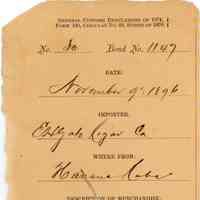 GENERAL CUSTOMS REGULATIONS OF 1874,
FORM 140, CIRCULAR No. 69, SERIES OF 1879.
No. 80 Bond No. 1147
DATE:
November 9th 1896
IMPORTER:
Co
WHERE FROM:
Havana Cuba
DESCRIPTION OF MERCHANDISE: